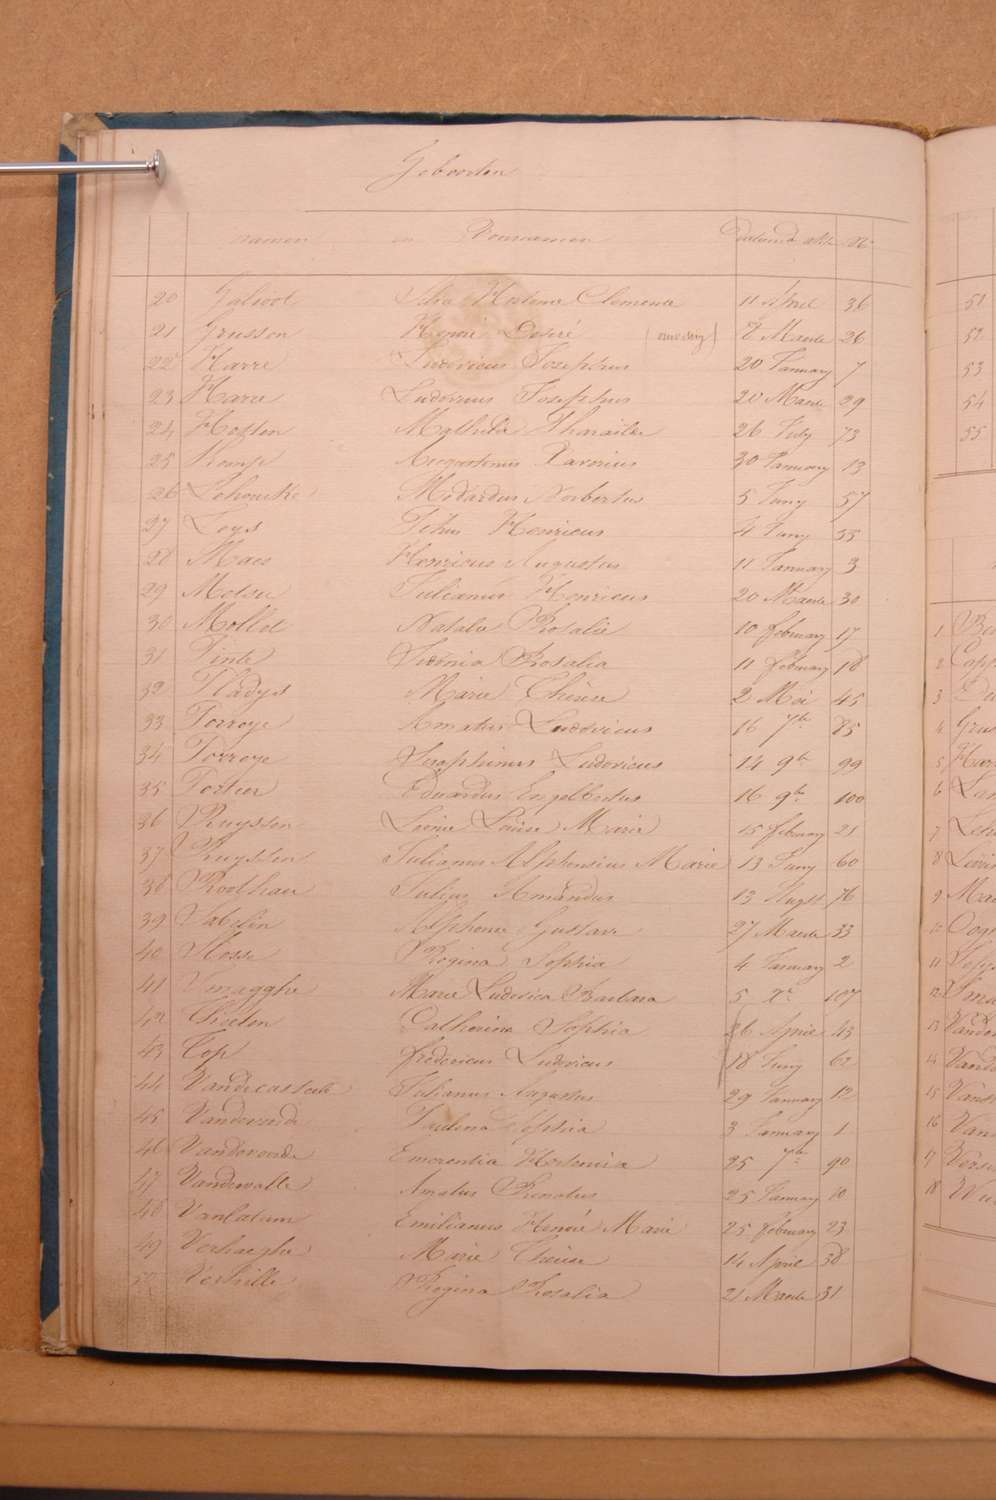 Geboorten
namen en Voornamen Datum d akte No
20 Galioot Hortense Clemence 11 April 36
21 Grusson Henri Desiré 7 Maerte 26
22 Harre Ludovicus Josephus 20 January 7
23 Harre Ludovicus Josephus 20 Maerte 29
24 Hosten Mathilde 26 July 73
25 Augustinus Xaverius 30 January 13
26 Lehoucke Medardus Norbertus 5 Juny 57
27 Loys Petrus Henricus 4 Juny 55
28 Maes Henricus Augustus 11 January 3
29 Metsu Julianus Henricus 20 Maerte 30
30 Mollet Natalie Rosalie 10 february 17
31 Pinte Sidonia Rosalia 11 february 18
32 Pladys Marie Thérèse 2 Mei 45
33 Porreye Amatus Ludovicus 16 7br 85
34 Porreye Seraphinus Ludovicus 14 9br 99
35 Portier Eduardus Engelbertus 16 9br 100
36 Ruyssen Leonie Louise Marie 15 february 21
37 Ruyssen Julianus Alphonsius Marie 13 Juny 60
38 Roothau Julius Amandus 13 Augst 76
39 Sabelin Alphonse Gustave 27 Maerte 33
40 Slosse Regina Sophia 4 January 2
41 Smagghe Marie Ludovica Barbara 5 Xr 107
42 Catherina Sophia 26 April 43
43 Top fredericus Ludovicus 18 Juny 62
44 Vandecasteele Julianus Augustus 29 January 12
45 Paulina Sophia 3 January 1
46 Emerentia Hortensia 25 7br 90
47 Vandewalle Amatus Renatus 25 January 10
48 Vanlatum Emilianus Henri Marie 25 february 23
49 Verhaeghe Marie Thérèse 14 April 38
50 Verhille Regina Rosalia 21 Maerte 31
51
52
53
54
55
1
2
3
4
5
6
7
8
9
11
12
13
14
15
16
17
18